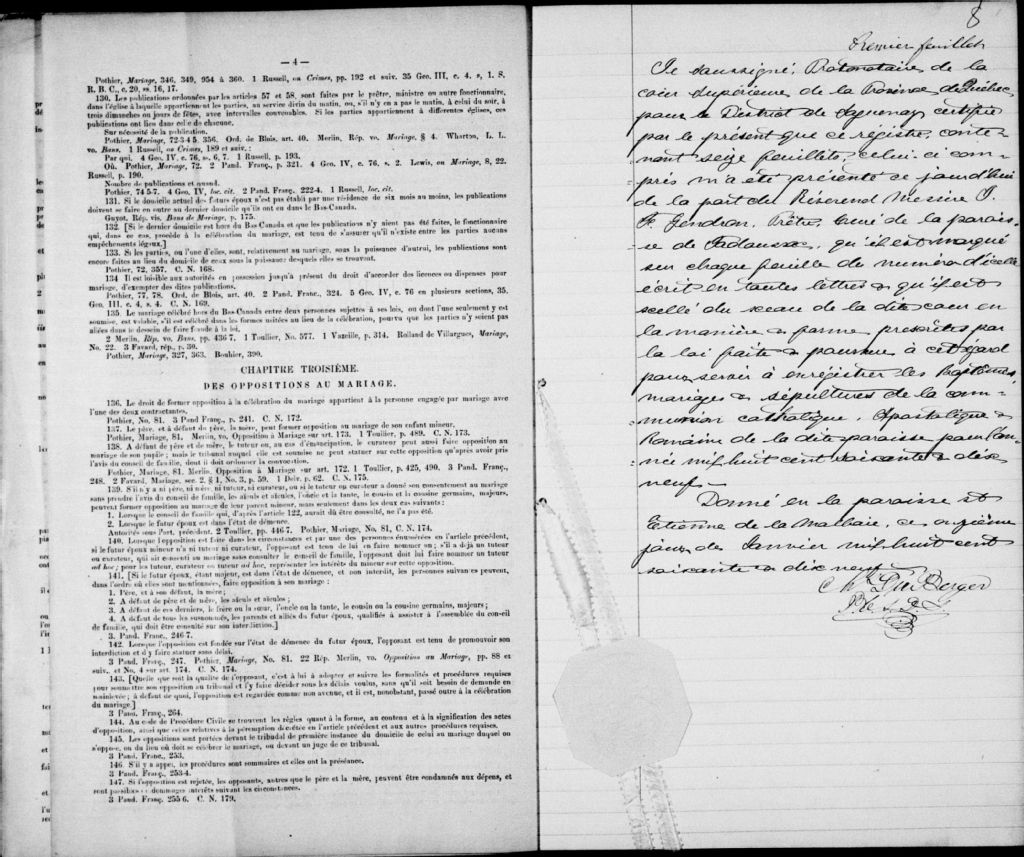 — 4 —
Pothier, Mariage, 346, 349, 954 à 360. 1 Russell, on Crimes, pp. 192 et suiv. 35 Geo. III, c. 4, s, 1. S,
R. B. C., c. 20, ss. 16, 17.
130. Les publications ordonnées par les articles 57 et 58, sont faites par le prêtre, ministre ou autre fonctionnaire,
dans l'église à laquelle appartiennent les parties, au service divin du matin, ou, s'il n'y en a pas le matin, à celui du soir, à
trois dimanches ou jours de fêtes, avec intervalles convenables. Si les parties appartiennent à différentes églises, ces
publications ont lieu dans celle de chacune.
Sur nécessité de la publication.
Pothier, Mariage, 72-3 4 5. 356. Ord. de Blois, art. 40. Merlin, Rép. vo. Mariage, § 4. Wharton, L. L.
vo. Bans. 1 Russell, on Crimes, 189 et suiv.:
Par qui. 4 Geo. IV, c. 76, ss. 6, 7. 1 Russell, p. 193.
Où. Pothier, Mariage, 72. 2 Pand. Franç., p. 321. 4 Geo. IV, c. 76, s. 2. Lewis, on Mariage, 8, 22.
Russell, p. 190.
Nombre de publications et quand.
Pothier, 74 5-7. 4 Geo, IV, loc. cit. 2 Pand. Franç., 222-4. 1 Russell, loc. cit.
131. Si le domicile actuel des futurs époux n'est pas établi par une résidence de six mois au moins, les publications
doivent se faire en outre au dernier domicile qu'ils ont eu dans le Bas-Canada.
Guyot, Rép. vis. Bans de Mariage, p. 175.
132. [Si le dernier domicile est hors du Bas Canada et que les publications n'y aient pas été faites, le fonctionnaire
qui, dans ce cas, procède à la célébration du mariage, est tenu de s'assurer qu'il n'existe entre les parties aucuns
empêchements légaux.]
133. Si les parties, ou l'une d'elles, sont, relativement au mariage, sous la puissance d'autrui, les publications sont
encore faites au lieu du domicile de ceux sous la puissance desquels elles se trouvent.
Pothier, 72, 357. C. N. 168.
134. Il est loisible aux autorités en possession jusqu'à présent du droit d'accorder des licences ou dispenses pour
mariage, d'exempter des dites publications.
Pothier, 77, 78. Ord. de Blois, art. 40. 2 Pand. Franc., 324. 5 Geo. IV, c. 76 en plusieurs sections, 35.
Geo. III, c. 4, s. 4. C. N. 169.
135. Le mariage célébré hors du Bas-Canada entre deux personnes sujettes à ses lois, ou dont l'une seulement y est
soumise, est valable, s'il est célébré dans les formes usitées au lieu de la célébration, pourvu que les parties n'y soient pas
allées dans le dessein de faire fraude à la loi.
2 Merlin, Rép. vo. Bans, pp. 436 7, 1 Toullier, No. 577. 1 Vazeille, p. 314. Rolland de Villargues, Mariage,
No. 22. 3 Favard, rép., p. 30.
Pothier, Mariage, 327, 363. Bouhier, 390.
CHAPITRE TROISIÈME.
DES OPPOSITIONS AU MARIAGE.
136. Le droit de former opposition à la célébration du mariage appartient à la personne engagée par mariage avec
l'une des deux contractantes.
Pothier, No. 81. 3 Pand Franç., p. 241. C. N. 172.
137. Le père, et à défaut de père, la mère, peut former opposition au mariage de son enfant mineur.
Pothier, Mariage, 81. Merlin, vo. Opposition à Mariage sur art. 173. 1 Touiller, p. 489. C. N. 173.
138. A défaut de père et de mère, le tuteur ou, au cas d'émancipation, le curateur peut aussi faire opposition au
mariage de son pupille; mais le tribunal auquel elle est soumise ne peut statuer sur cette opposition qu'après avoir pris
l'avis du conseil de famille, dont il doit ordonner la convocation.
Pothier, Mariage, 81. Merlin. Opposition à Mariage sur art. 172. 1 Toullier, p. 425, 490. 3 Pand. Franç.,
248. 2 Favard, Mariage, sec. 2, § 1, No. 3, p. 59. 1 Delv. p. 62. C. N. 175.
139. S'il n'y a ni père, ni mère, ni tuteur, ni curateur, ou si le tuteur ou curateur a donné son consentement au mariage
sans prendre l'avis du conseil de famille, les aïeuls et aïeules, l'oncle et la tante, le cousin et la cousine germains, majeurs,
peuvent former opposition au mariage de leur parent mineur, mais seulement dans les deux cas suivants:
1. Lorsque le conseil de famille qui, d'après l'article 122, aurait dû être consulté, ne l'a pas été.
2. Lorsque le futur époux est dans l'état de démence.
Autorités sous l'art. précédent. 2 Toullier, pp. 446 7. Pothier, Mariage, No. 81, C. N. 174.
140. Lorsque l'opposition est faite dans les circonstances et par une des personnes énumérées en l'article précédent,
si le futur époux mineur n'a ni tuteur ni curateur, l'opposant est tenu de lui en faire nommer un; s'il a déjà un tuteur
ou curateur, qui ait consenti au mariage sans consulter le conseil de famille, l'opposant doit lui faire nommer un tuteur
ad hoc; pour les tuteur, curateur ou tuteur ad hoc, représenter les intérêts du mineur sur cette opposition.
141. [Si le futur époux, étant majeur, est dans l'état de démence, et non interdit, les personnes suivantes peuvent,
dans l'ordre où elles sont mentionnées, faire opposition à son mariage:
1. Père, et à son défaut, la mère;
2. A défaut de père et de mère, les aïeuls et aïeules;
3. A défaut de ces derniers, le frère ou la sœur, l'oncle ou la tante, le cousin ou la cousine germains, majeurs;
4. A défaut de tous les susnommés, les parents et alliés du futur époux, qualifiés à assister à l'assemblée du conseil
de famille, qui doit être consulté sur son interdiction.]
3. Pand. Franc., 246-7.
142. Lorsque l'opposition est fondée sur l'état de démence du futur époux, l'opposant est tenu de promouvoir son
interdiction et d'y faire statuer sans délai.
3 Pand. Franç., 247. Pothier, Mariage, No. 81. 22 Rép. Merlin, vo. Opposition au Mariage, pp. 88 et
suiv., et No. 4 sur art. 174. C. N. 174.
143. [Quelle que soit la qualité de l'opposant, c'est à lui à adopter et suivre les formalités et procédures requises
pour soumettre son opposition au tribunal et l'y faire décider sous les délais voulus, sans qu'il soit besoin de demande en
mainlevée; à défaut de quoi, l'opposition est regardée comme non avenue, et il est, nonobstant, passé outre à la célébration
du mariage.]
3 Pand. Franç., 264.
144. Au code de Procédure Civile se trouvent les règles quant à la forme, au contenu et à la signification des actes
d'opposition, ainsi que celles relatives à la péremption décrétée en l'article précédent et aux autres procédures requises.
145. Les oppositions sont portées devant le tribunal de première instance du domicile de celui au mariage duquel on
s'oppose, ou du lieu où doit se célébrer le mariage, ou devant un juge de ce tribunal.
3 Pand. Franc., 253.
146. S'il y a appel, les procédures sont sommaires et elles ont la préséance.
3 Pand. Franç., 253-4.
147. Si l'opposition est rejetée, les opposants, autres que le père et la mère, peuvent être condamnés aux dépens, et
sont passibles de dommages intérêts suivant les circonstances.
3 Pand. Franç. 255 6. C. N. 179.
8
Premier feuillet
Je soussigné, Protonotaire de la
cour supérieure de la Province de Québec
pour le District de Saguenay certifie
par le présent que ce régistre, conte-
nant seize feuillets, celui-ci com-
pris m'a été présenté ce jourd'hui
de la part du Révérend Messire J.
F. Gendron, Prêtre, Curé de la parois-
se de Tadoussac, qu'il est marqué
sur chaque feuille du numéro d'icelle
écrit en toutes lettres & qu'il est
scellé du sceau de la dite cour en
la manière & forme prescrites par
la loi faite & pourvue à cet égard
pour servir à enrégistrer les Baptêmes,
mariages & sépultures de la com-
munion catholique, Apostolique &
Romaine de la dite paroisse pour l'an-
née mil huit cent soixante & dix
neuf.
Donné en la paroisse St
Etienne de la Malbaie, ce onzième
jour de Janvier mil huit cent
soixante & dix neuf.
Chs Du Berger
P.C.S.D.S.